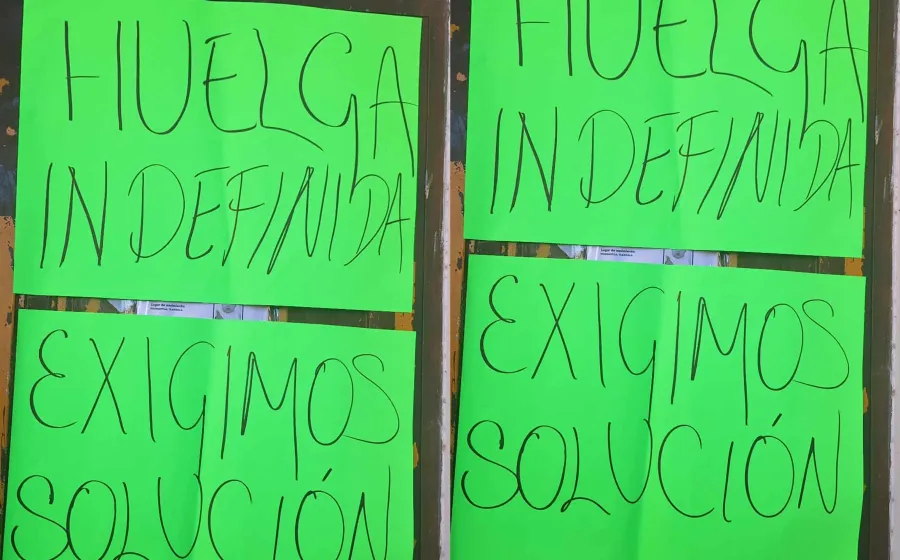 HUELGA
INDEFINIDA
EXIGIMOS
SOLUCIÓN
HUELGA
INDEFINIDA
EXIGIMOS
SOLUCIÓN